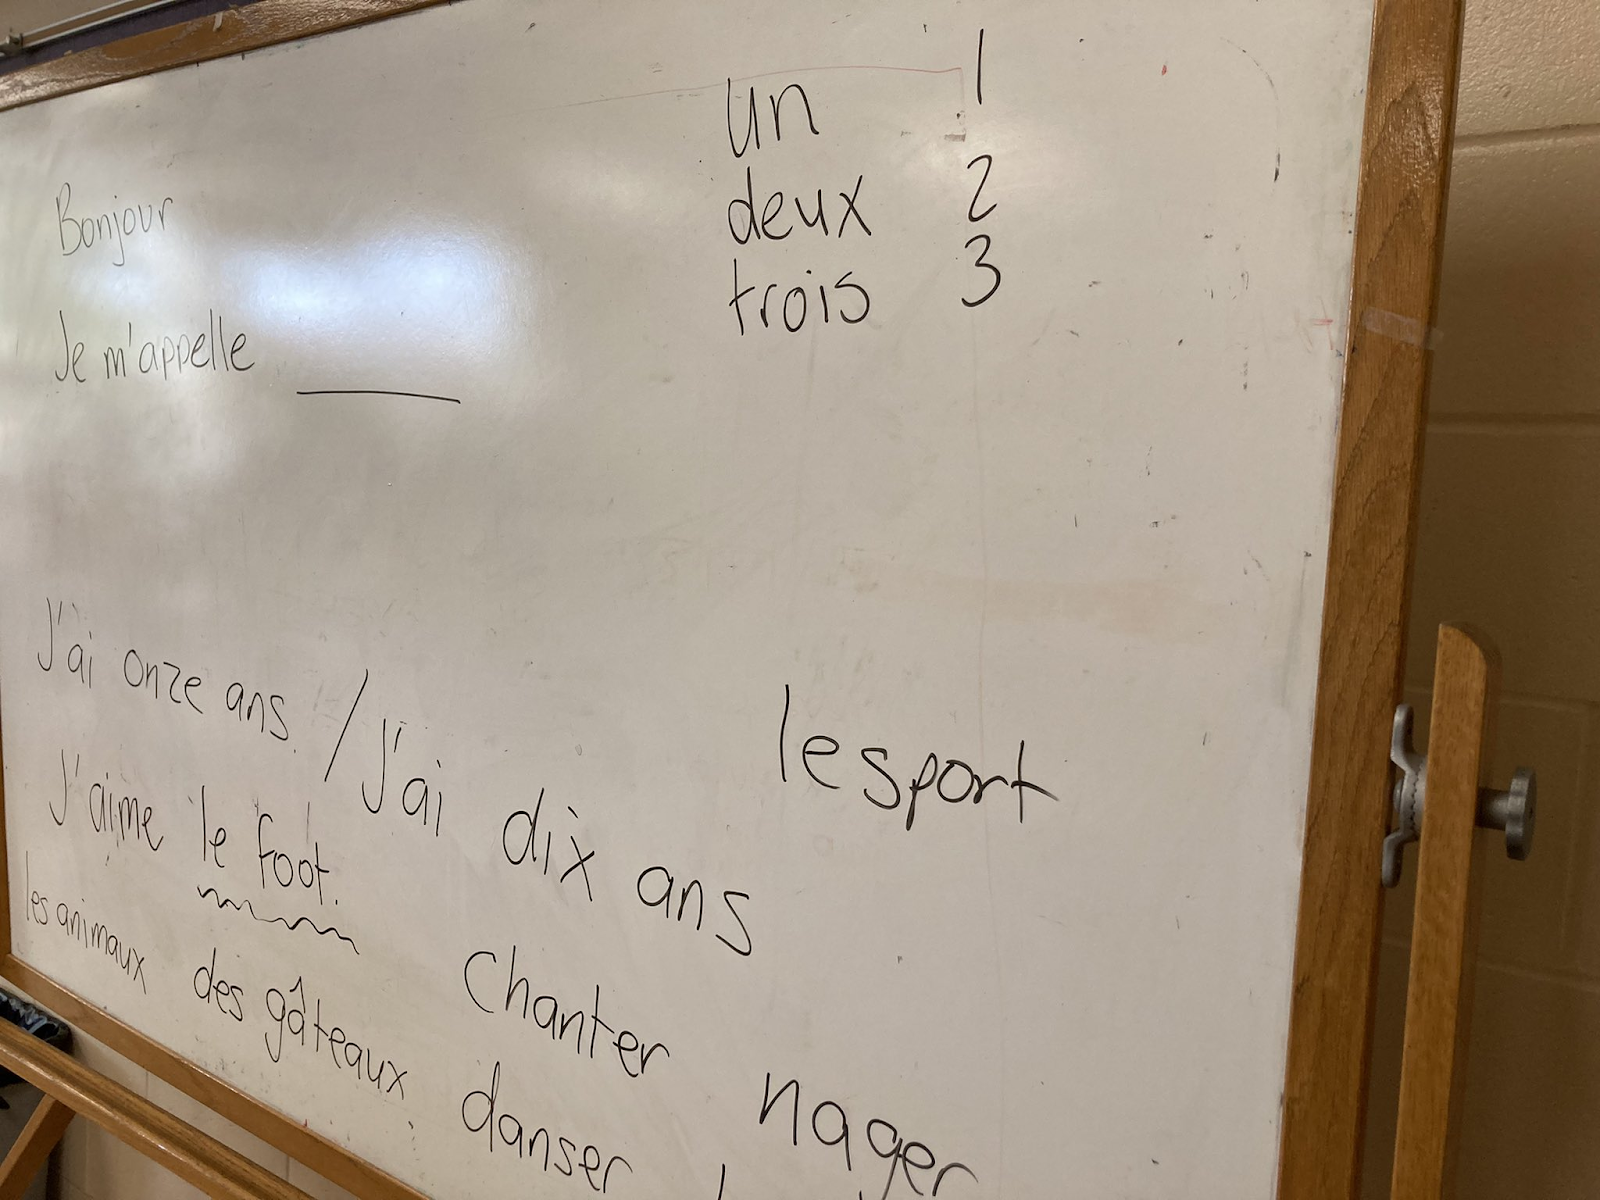 un 1
deux 2
trois 3
Bonjour
Je m'appelle
J'ai onze ans. / J'ai dix ans
le sport
J'aime le foot.
les animaux des gâteaux chanter
danser nager